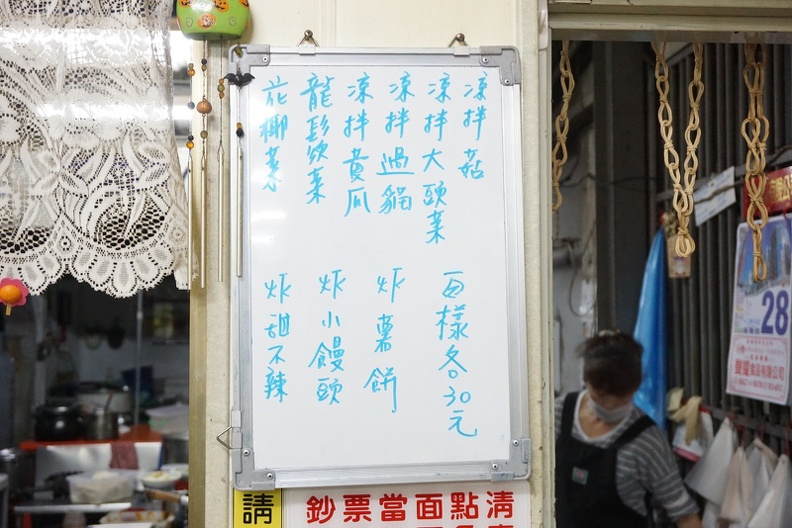 凉拌菇
凉拌大頭菜
凉拌過貓
凉拌黄瓜
龍鬚菜
花椰菜
百樣各30元
炸薯餅
炸小饅頭
炸甜不辣
請
鈔票當面點清
28